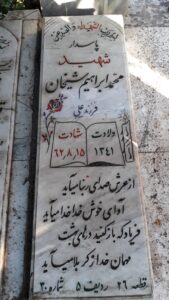 پاسدار
شهید
محمد ابراهیم شیخان
فرزند علی
ولادت
۱۳۴۱
شهادت
۶۲٫۸٫۱۵
از عرش صدای ربنا میآید
آوای خوش خدا خدا میآید
فریاد که باز کنید درهای بهشت
مهمان خدا ز کربلا میآید
قطعه ۲۶ ردیف ۵ شماره ۲۰